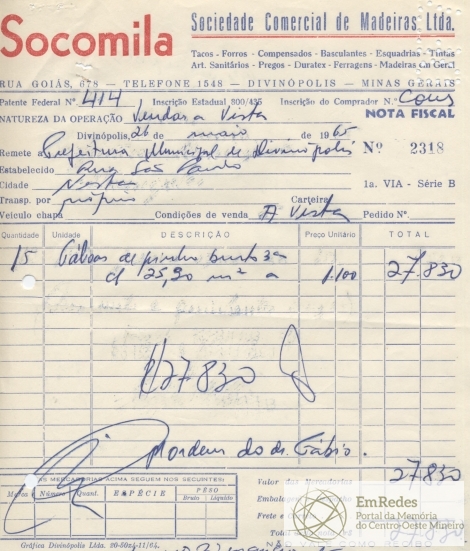 Socomila
Sociedade Comercial de Madeiras Ltda.
Tacos - Forros - Compensados - Basculantes - Esquadrias - Tintas
Art. Sanitários - Pregos - Duratex - Ferragens - Madeiras em Geral
RUA GOIÁS, 678 - TELEFONE 1548 - DIVINÓPOLIS - MINAS GERAIS
Patente Federal Nº 414 Inscrição Estadual 800/435 Inscrição do Comprador N.º Cons
NATUREZA DA OPERAÇÃO Vendas a Vista NOTA FISCAL
Divinópolis, 26 de maio de 1965
Remete a Prefeitura Municipal de Divinópolis Nº 2318
Estabelecido Rua São Paulo
Cidade Nesta 1a. VIA - Série B
Transp. por próprio Carteira
Veículo chapa Condições de venda A Vista Pedido Nº.
Quantidade Unidade DESCRIÇÃO Preço Unitário TOTAL
15 Tábuas de pinho bruto 3a
c/ 25,30 m² a 1.100 27.830
27.830
Mordem do dr. Fábio.
AS MERCADORIAS ACIMA SEGUEM NOS SEGUINTES:
Marca Número Quant. ESPÉCIE PÊSO
Bruto Líquido
Valor das Mercadorias 27.830
Embalagem
Frete e
27.830
NÃO VALE COMO RECIBO
Gráfica Divinópolis Ltda. 80-50x4-11/64.
EmRedes
Portal da Memória
do Centro-Oeste Mineiro